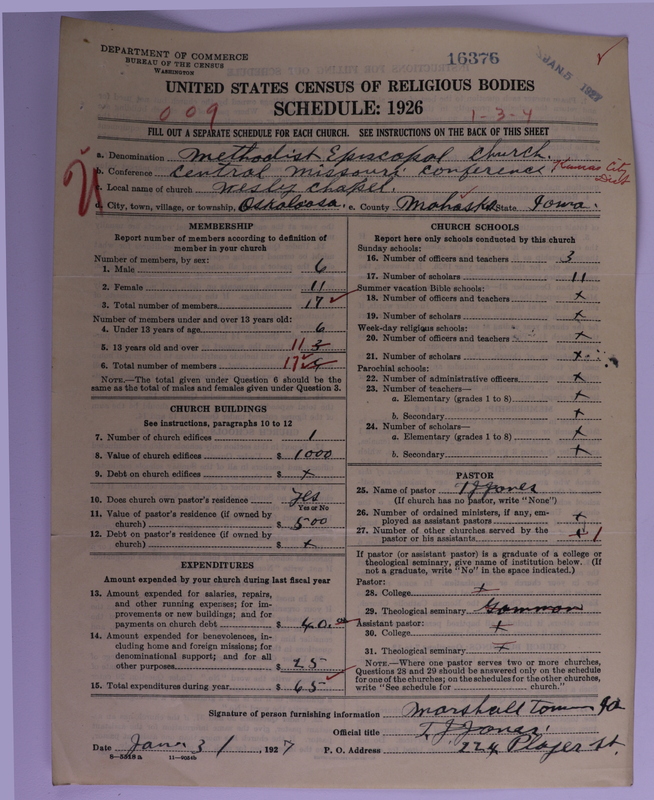 DEPARTMENT OF COMMERCE
BUREAU OF THE CENSUS
WASHINGTON
16376
JAN 5 1927
UNITED STATES CENSUS OF RELIGIOUS BODIES
SCHEDULE: 1926
009
1-3-4
FILL OUT A SEPARATE SCHEDULE FOR EACH CHURCH. SEE INSTRUCTIONS ON THE BACK OF THIS SHEET
a. Denomination Methodist Episcopal Church.
b. Conference Central Missouri Conference Kansas City Dist
c. Local name of church Wesley Chapel.
d. City, town, village, or township, Oskaloosa. e. County Mahaska State Iowa.
MEMBERSHIP
Report number of members according to definition of
member in your church
Number of members, by sex:
1. Male 6
2. Female 11
3. Total number of members 17
Number of members under and over 13 years old:
4. Under 13 years of age 6
5. 13 years old and over 11 3
6. Total number of members 17
NOTE.—The total given under Question 6 should be
the same as the total of males and females given under Question 3.
CHURCH BUILDINGS
See instructions, paragraphs 10 to 12
7. Number of church edifices 1
8. Value of church edifices $ 1000
9. Debt on church edifices $ x
10. Does church own pastor's residence Yes
Yes or No
11. Value of pastor's residence (if owned by
church) $ 500
12. Debt on pastor's residence (if owned by
church) $ x
EXPENDITURES
Amount expended by your church during last fiscal year
13. Amount expended for salaries, repairs,
and other running expenses; for im-
provements or new buildings; and for
payments on church debt $ 40.00
14. Amount expended for benevolences, in-
cluding home and foreign missions; for
denominational support; and for all
other purposes $ 25
15. Total expenditures during year $ 65
CHURCH SCHOOLS
Report here only schools conducted by this church
Sunday schools:
16. Number of officers and teachers 3
17. Number of scholars 11
Summer vacation Bible schools:
18. Number of officers and teachers x
19. Number of scholars x
Week-day religious schools:
20. Number of officers and teachers x
21. Number of scholars x
Parochial schools:
22. Number of administrative officers x
23. Number of teachers—
a. Elementary (grades 1 to 8) x
b. Secondary x
24. Number of scholars—
a. Elementary (grades 1 to 8) x
b. Secondary x
PASTOR
25. Name of pastor T J Jones
(If church has no pastor, write "None")
26. Number of ordained ministers, if any, em-
ployed as assistant pastors x
27. Number of other churches served by the
pastor or his assistants x 1
If pastor (or assistant pastor) is a graduate of a college or
theological seminary, give name of institution below. (If
not a graduate, write "No" in the space indicated.)
Pastor:
28. College x
29. Theological seminary Gammon
Assistant pastor:
30. College x
31. Theological seminary x
NOTE.—Where one pastor serves two or more churches,
Questions 28 and 29 should be answered only on the schedule
for one of the churches; on the schedules for the other churches,
write "See schedule for church."
Signature of person furnishing information Marshalltown Ia
Official title T J Jones
Date Jan 3 / , 1927 P. O. Address 224 Player St.
8-5518a 11-9024b